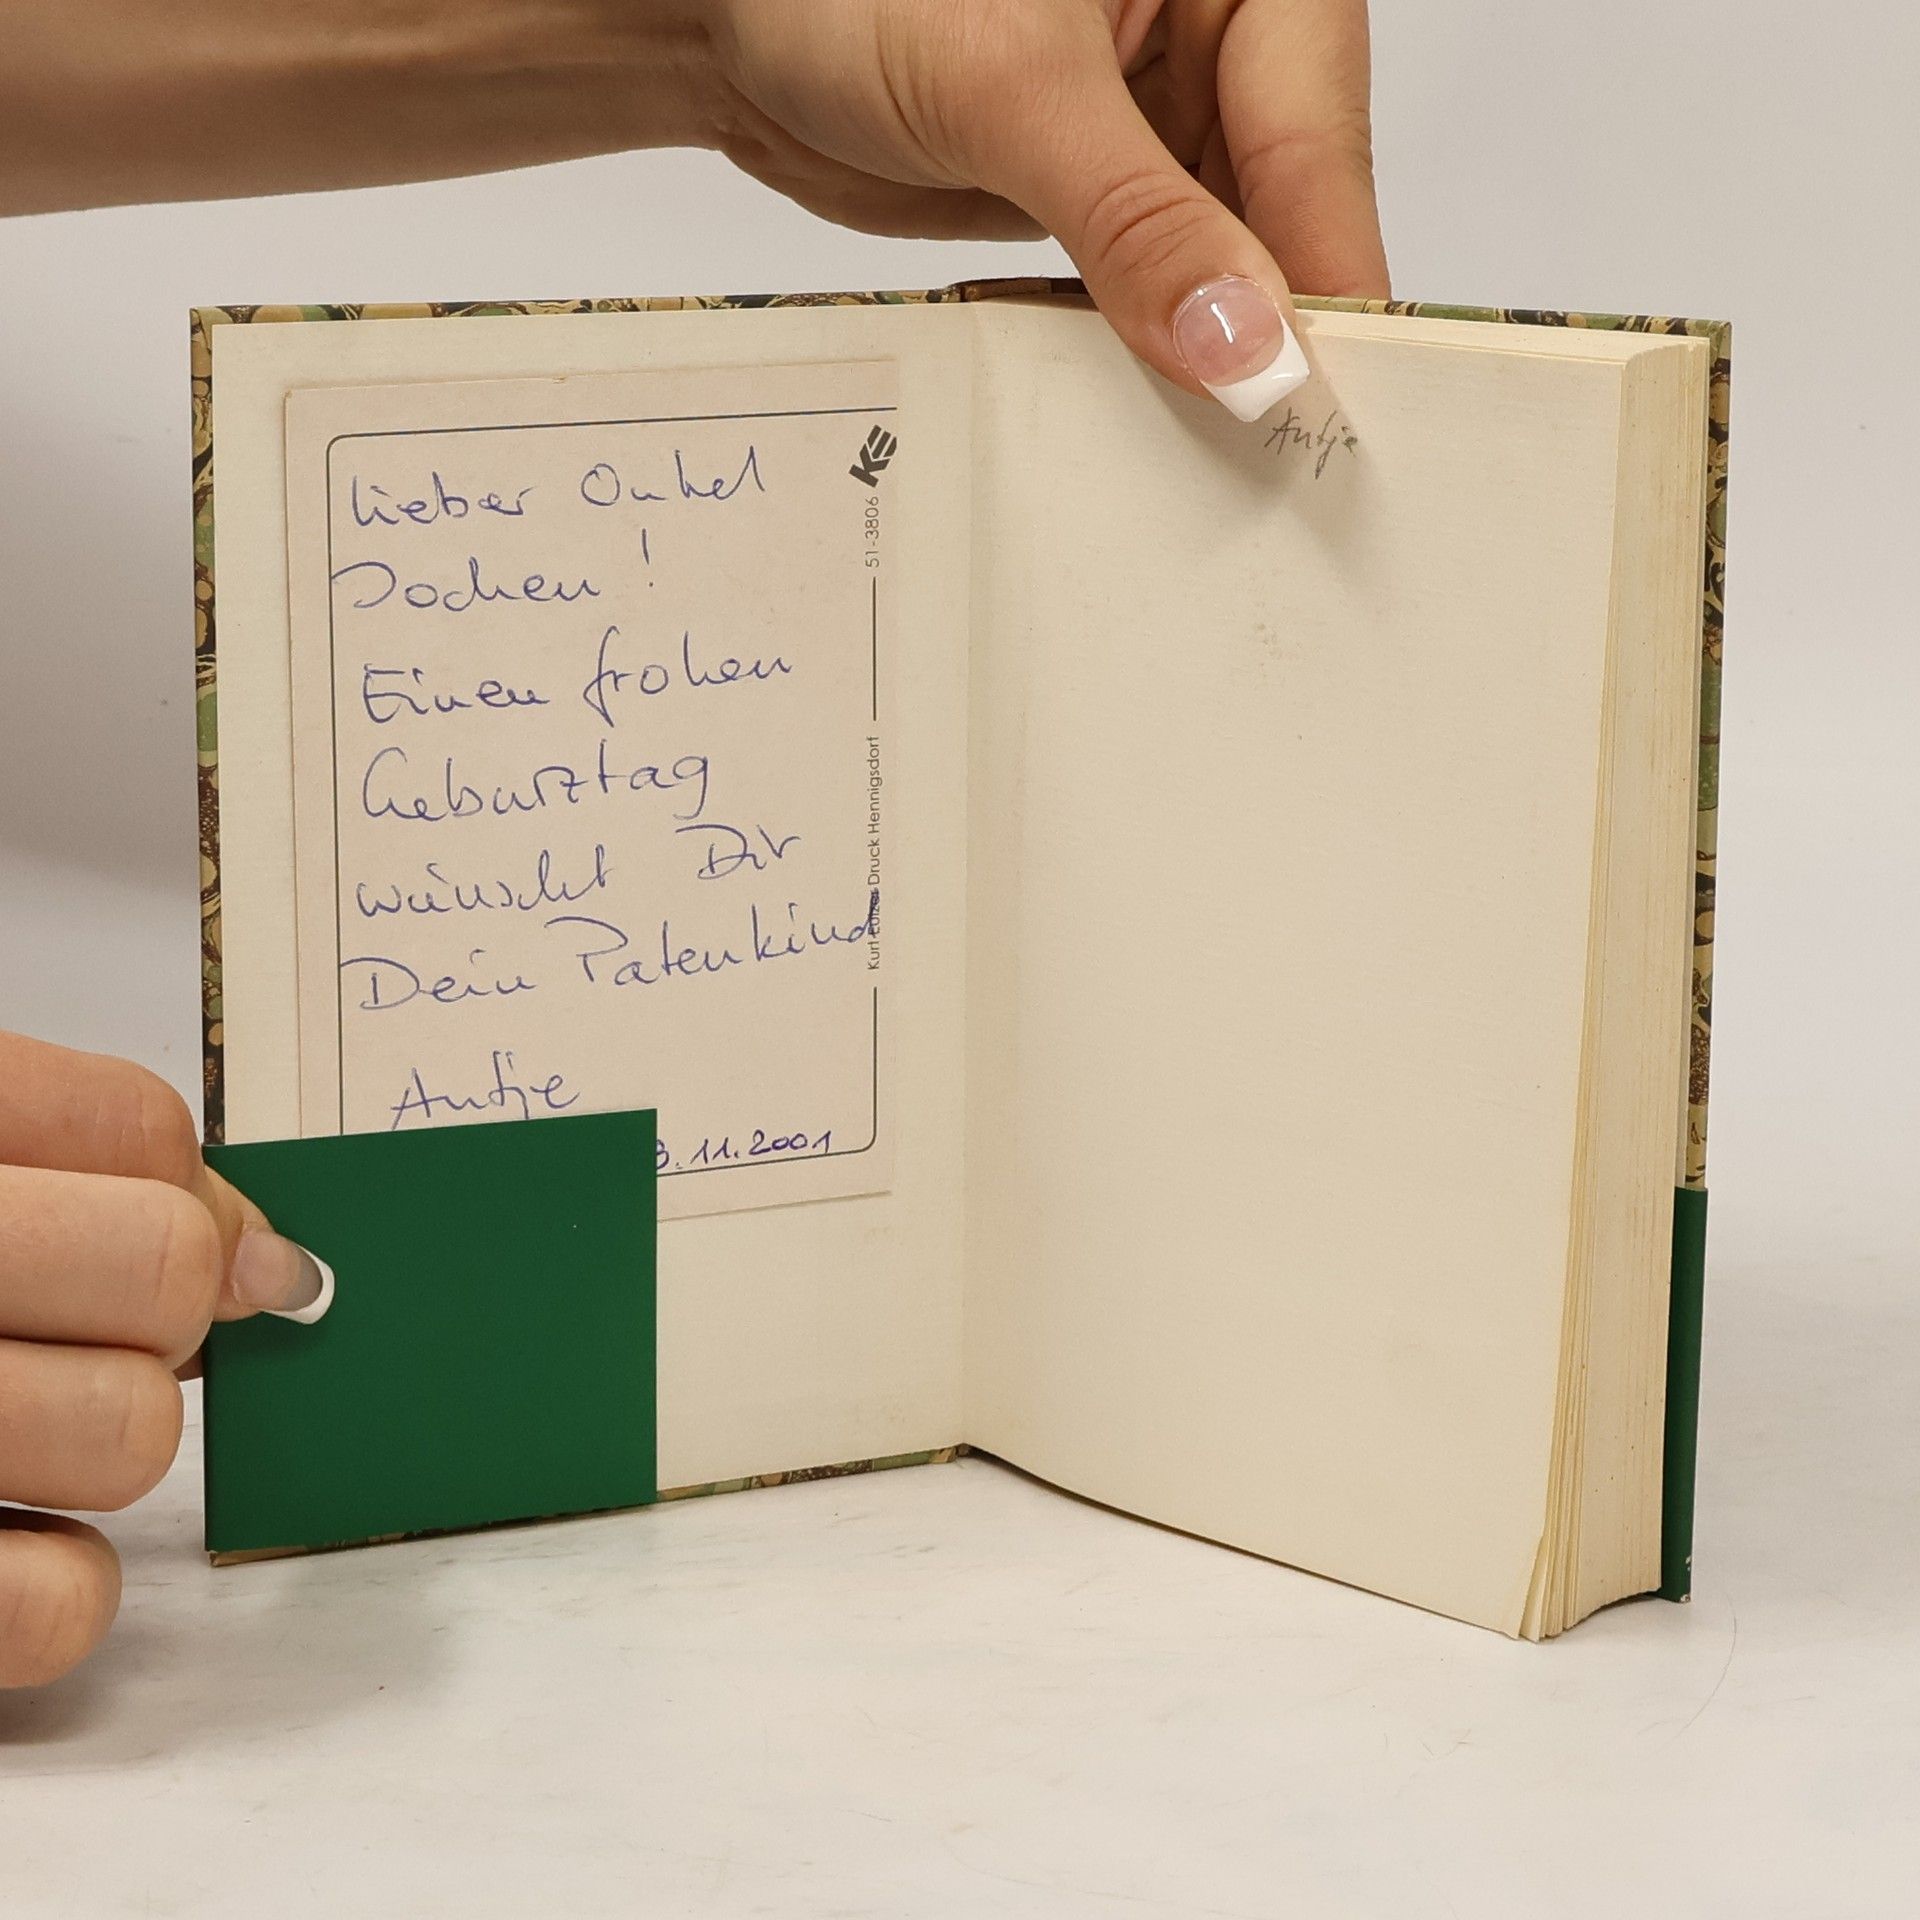 Lieber Onkel
Jochen!
Einen frohen
Geburztag
wünscht Dir
Dein Patenkind
Antje
3.11.2001
51-3806
Druck Hennigsdorf
Antje